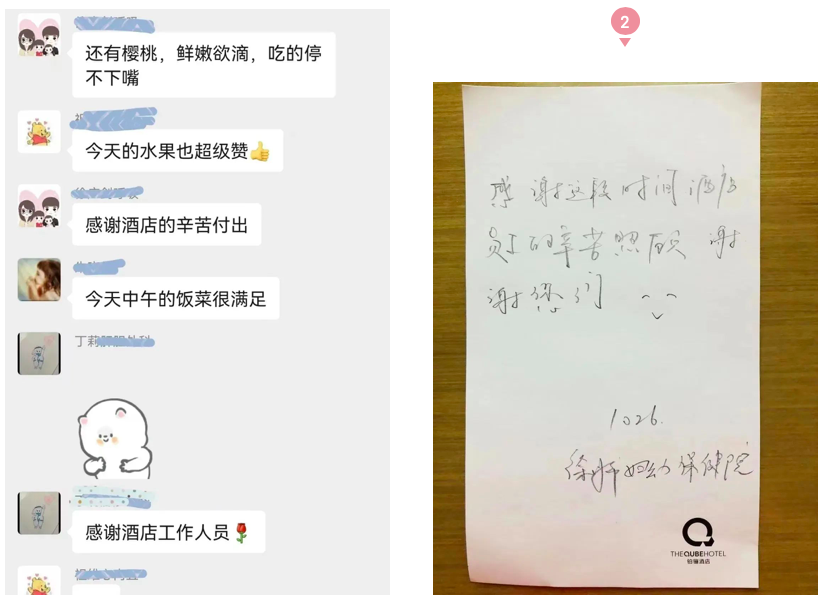 还有樱桃，鲜嫩欲滴，吃的停
不下嘴
今天的水果也超级赞👍
感谢酒店的辛苦付出
今天中午的饭菜很满足
丁莉
感谢酒店工作人员🌹
2
感谢这段时间酒店
员工的辛苦照顾 谢
谢您们
1026.
徐州妇幼保健院
THEQUBEHOTEL
铂骊酒店